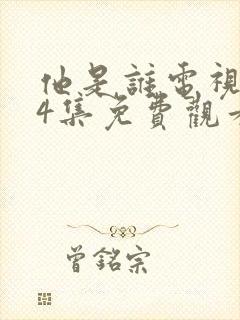 他是誰電視
4集免費觀看
曾銘宗